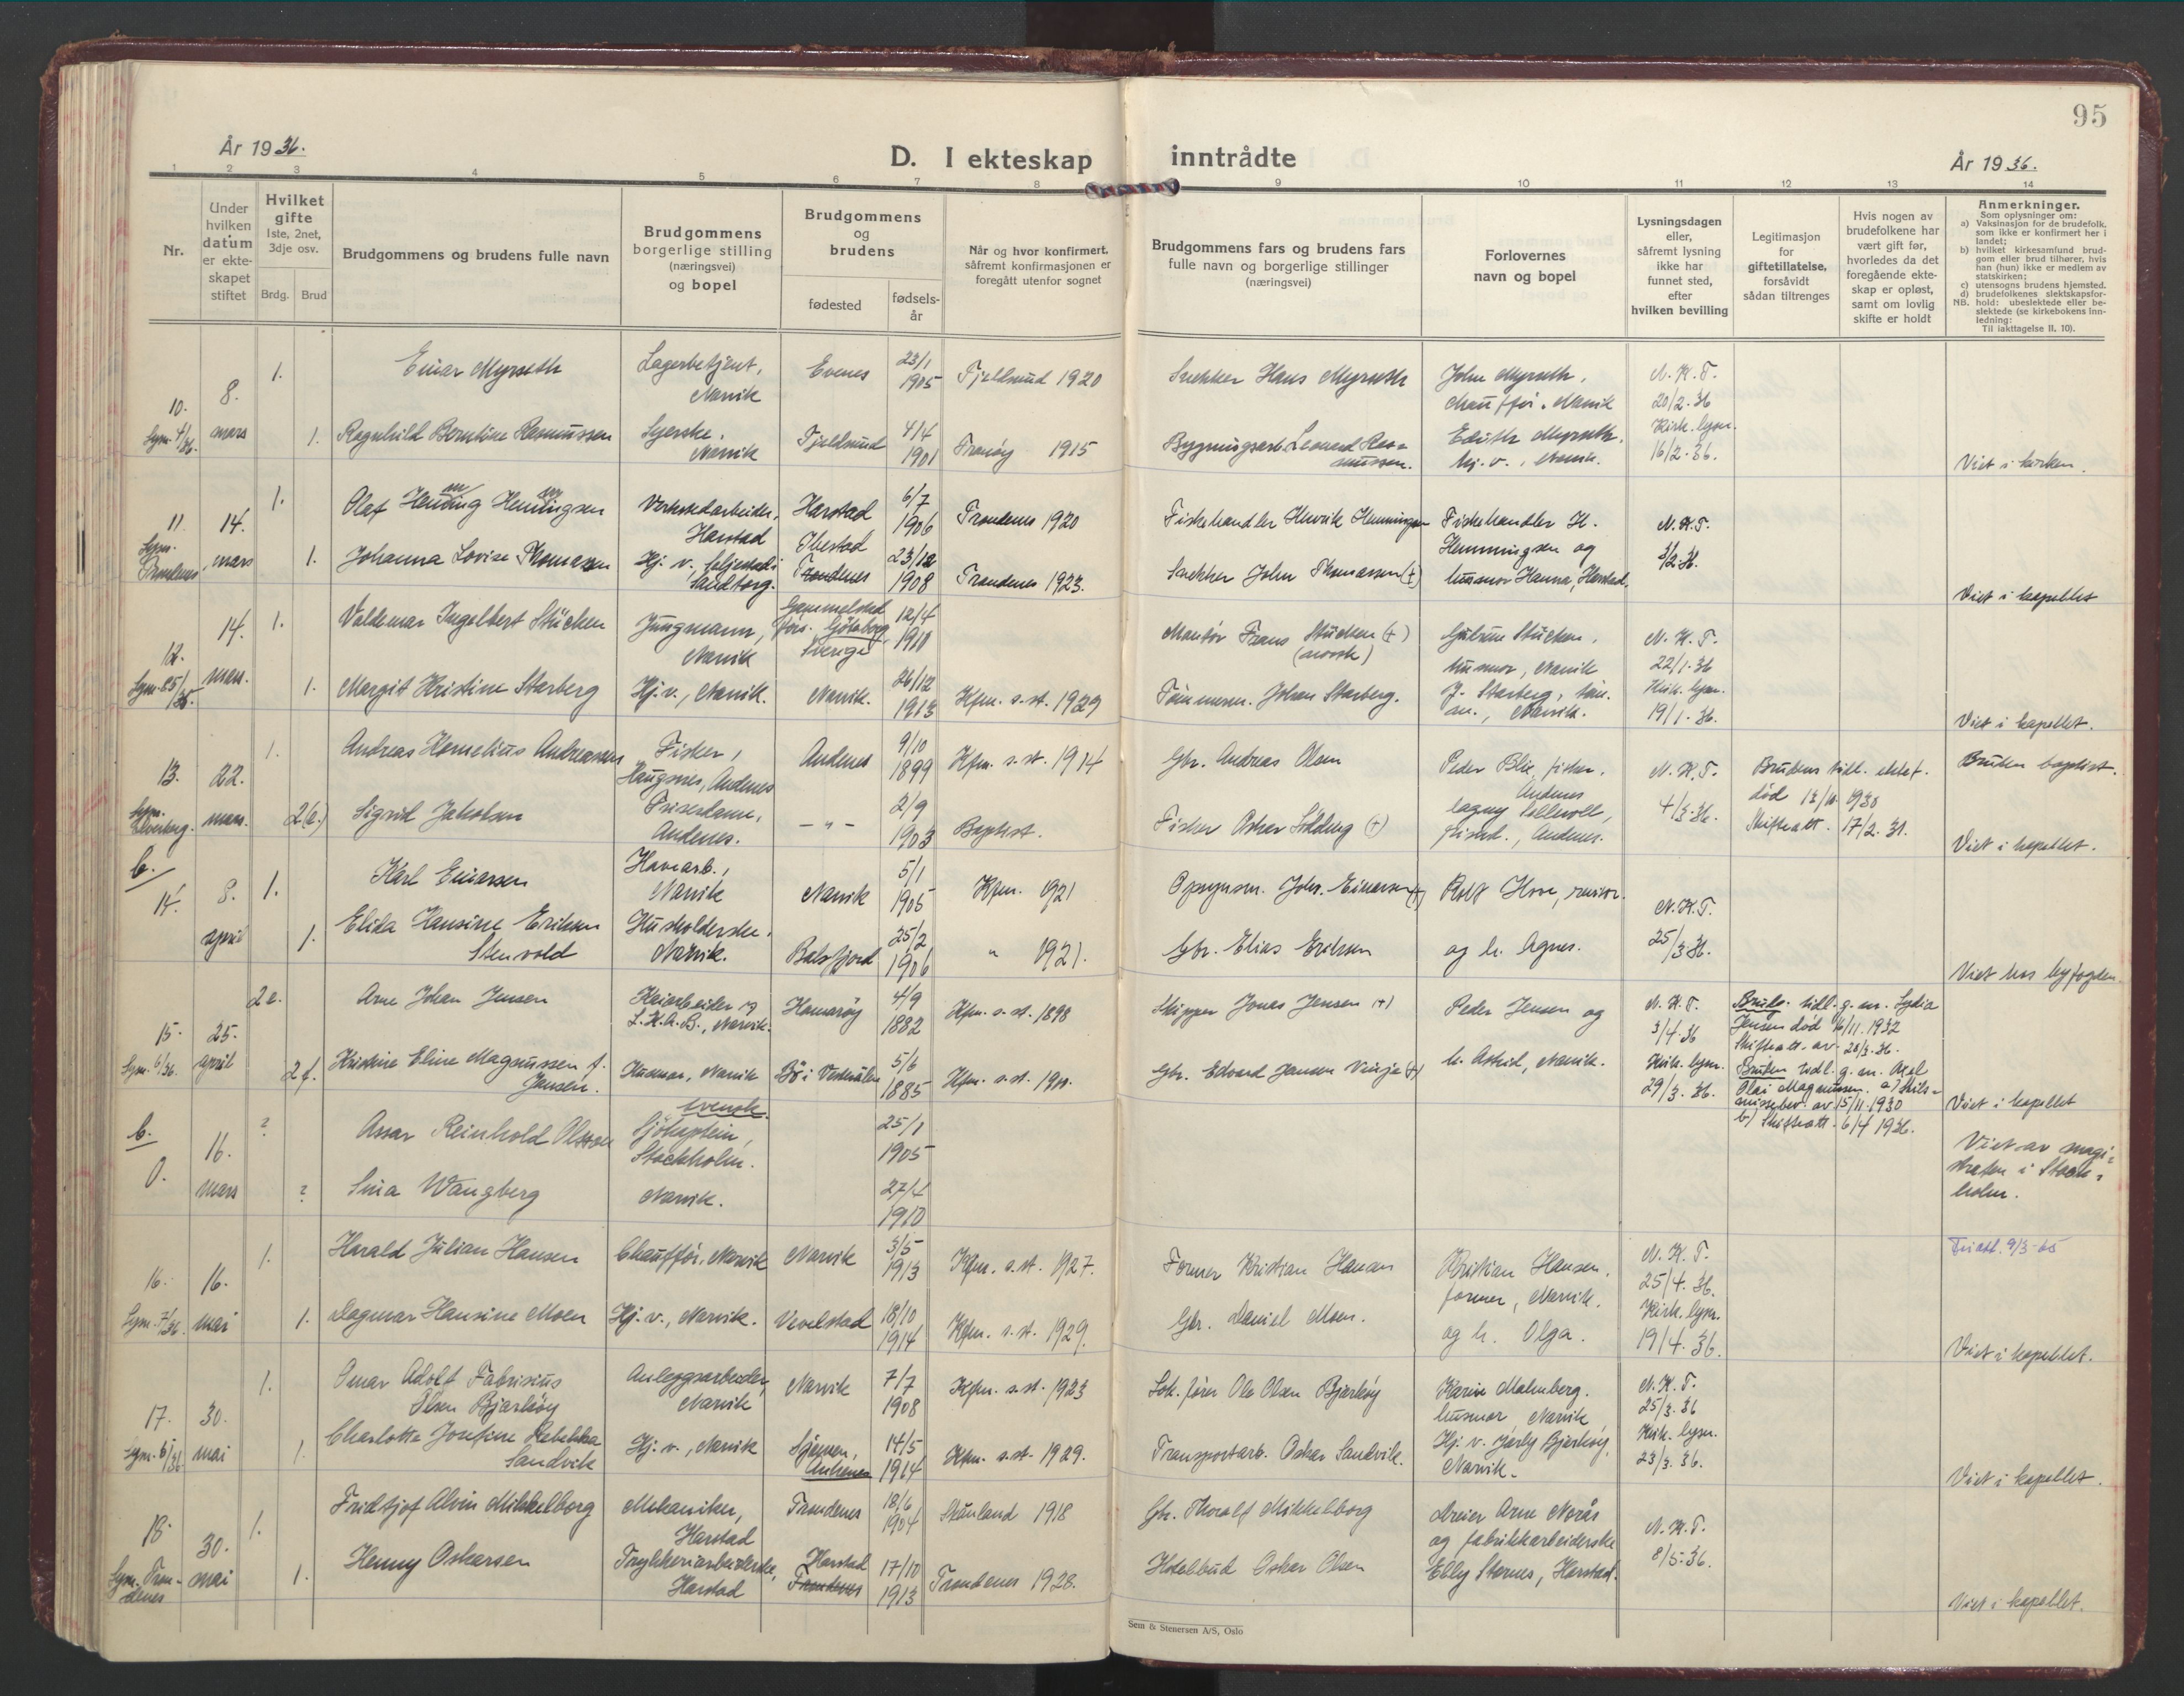 95
År 1936.
D. I ekteskap inntrådte
År 1936.
1 2 3 4 5 6 7 8 9 10 11 12 13 14
Nr.
Under hvilken datum er ekteskapet stiftet
Hvilket gifte
1ste, 2net, 3dje osv.
Brdg. Brud
Brudgommens og brudens fulle navn
Brudgommens borgerlige stilling (næringsvei) og bopel
Brudgommens og brudens
fødested
fødselsår
Når og hvor konfirmert, såfremt konfirmasjonen er foregått utenfor sognet
Brudgommens fars og brudens fars fulle navn og borgerlige stillinger (næringsvei)
Forlovernes navn og bopel
Lysningsdagen eller, såfremt lysning ikke har funnet sted, efter hvilken bevilling
Legitimasjon for giftetillatelse, forsåvidt sådan tiltrenges
Hvis nogen av brudefolkene har vært gift før, hvorledes da det foregående ekteskap er opløst, samt om lovlig skifte er holdt
Anmerkninger.
Som oplysninger om:
a) Vaksinasjon for de brudefolk, som ikke er konfirmert her i landet;
b) hvilket kirkesamfund brudgom eller brud tilhører, hvis han (hun) ikke er medlem av statskirken;
c) utensogns brudens hjemsted.
d) brudefolkenes slektskapsforhold: ubeslektede eller beslektede (se kirkebokens Innledning:
NB. Til iakttagelse II. 10).
10. Lysn. 4/36.
8. mars
1. Einar Myrseth
Lagerbetjent, Narvik
Evenes
23/1 1905
Tjeldsund 1920
Snekker Hans Myrseth
John Myrseth, chauffør, Narvik
N. K. T. 20/2-36
1. Ragnhild Berntine Rasmussen
Syerske, Narvik
Tjeldsund
4/4 1901
Tranøy 1915
Bygningsarb. Leonard Rasmussen.
Edith Myrseth, hj. v., Narvik.
Kirk. lysn. 16/2-36.
Viet i kirken.
11. Lysn. Trondenes
14. mars
1. Olaf Henning Henningsen
Verkstedarbeider, Harstad
Harstad
6/7 1906
Trondenes 1920
Fiskehandler Henrik Henningsen
Fiskehandler H. Henningsen og husmor Hanna, Harstad.
N. K. T. 3/2-36.
1. Johanna Lovise Thomassen
Hj. v., Seljestad i Sandtorg.
Ibestad Trondenes
23/12 1908
Trondenes 1923.
Snekker John Thomassen (+)
Viet i kapellet
12. Lysn. 85/35.
14. mars.
1. Valdemar Ingelbert Stücken
Jungmann, Narvik
Gammelstad förs. Göteborg Sverige
12/4 1911
Montør Frans Stücken (+) (norsk)
Gudrun Stücken, husmor, Narvik
N. K. T. 22/1-36
1. Margit Kristine Starberg
Hj. v., Narvik.
Narvik.
26/12 1913
Kfm. s. st. 1929
Tømmerm. Johan Starberg.
J. Starberg, tøm. m., Narvik.
Kirk. lysn. 19/1-36.
Viet i kapellet.
13. Lysn. Elverberg.
22. mars.
1. Andreas Kornelius Andreassen
Fisker, Haugnes, Andenes
Andenes
9/10 1899
Kfm. s. st. 1914
Gbr. Andreas Olsen
Peder Blix, fisker, Andenes
N. K. T. 4/3-36.
Brudens tidl. ektef. død 12/10 1930 Skifteatt. 17/2-31.
Bruden baptist.
2 (e.) Sigrid Jakobsen
Frisердame, Andenes.
- " -
2/9 1903
Baptist.
Fisker Oskar Södberg (+)
Viet i kapellet.
b. 14.
8. april
1. Karl Einarsen
Havnearb., Narvik
Narvik
5/1 1905
Kfm. 1921
Opsynsm. Johs. Einarsen (+)
Rolf Hove, revisor.
N. K. T. 25/3-36.
1. Elida Hansine Eriksen Stenvold
Husholderske, Narvik.
Balsfjord
25/2 1906
" 1921.
Gbr. Elias Eriksen
og h. Agnes.
Viet hos byfogden.
15. Lysn. 6/36.
25. april
2 e. Arne Johan Jensen
Kaiarbeider v. L.K.A.B., Narvik.
Hamarøy
4/9 1882
Kfm. s. st. 1898
Skipper Jonas Jensen (+)
Peder Jensen og
N. K. T. 3/4-36
Brudg. tidl. g. m. Lydia Jensen død 16/11 1932 Skifteatt. av 20/3-36.
2 f. Kristine Eline Magnussen f. Jensen.
Husmor, Narvik
Bø i Vesterålen
5/6 1885
Kfm. s. st. 1901.
Gbr. Edvard Jensen Vinje (+)
h. Astrid, Narvik.
Kirk. lysn. 29/3-36.
Bruden tidl. g. m. Axel Olai Magnussen. a) Skilsmissebev. av 15/11 1930 b) Skifteatt. 6/4 1936.
Viet i kapellet
b. 0.
16. mars
? Assar Reinhold Olsson
svensk. Sjökaptein, Stockholm.
25/1 1905
? Sina Wangberg
Narvik.
27/4 1910
Viet av magistraten i Stockholm.
16. Lysn. 7/36.
16. mai
1. Harald Julian Hansen
Chauffør, Narvik
Narvik
3/5 1913
Kfm. s. st. 1927.
Former Kristian Hansen
Kristian Hansen, former, Narvik.
N. K. T. 25/4-36.
Friatt. 9/3-65
1. Dagmar Hansine Moen
Hj. v., Narvik.
Vevelstad
18/10 1914
Kfm. s. st. 1929.
Gbr. Daniel Moen.
og h. Olga.
Kirk. lysn. 19/4-36.
Viet i kapellet.
17. Lysn. 6/36
30. mai
1. Omar Adolf Fabrisius Olsen Bjarkøy
Anleggsarbeider, Narvik
Narvik
7/7 1908
Kfm. s. st. 1923
Lok. fører Ole Olsen Bjarkøy
Karin Malmberg, husmor, Narvik
N. K. T. 25/3-36
1. Charlotte Josefine Rebekka Sandvik
Hj. v., Narvik
Sjøveien, Andenes
14/5 1914
Kfm. s. st. 1929.
Transportarb. Oskar Sandvik.
Hj. v. Jarly Bjarkøy, Narvik.
Kirk. lysn. 23/3-36.
Viet i kapellet.
18. Lysn. Trondenes
30. mai
1. Fridtjof Alvin Mikkelborg
Mekaniker, Harstad
Trondenes
18/6 1904
Skånland 1918
Gbr. Thoralf Mikkelborg
Dreier Arne Norås og fabrikkarbeiderske Elly Stornes, Harstad.
N. K. T. 8/5-36.
1. Henny Oskarsen
Trykkeriarbeiderske, Harstad
Harstad Trondenes
17/10 1913
Trondenes 1928.
Hotelbud Oskar Olsen
Viet i kapellet.
Sem & Stenersen A/S, Oslo